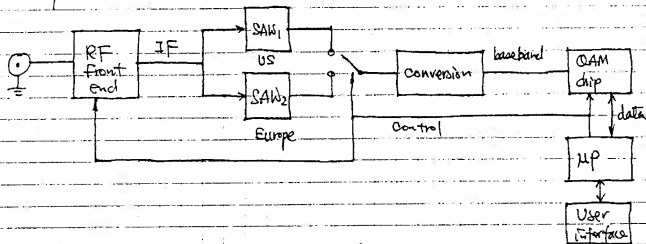 RF
front
end
IF
SAW1
US
SAW2
Europe
Conversion
baseband
QAM
chip
data
Control
μP
User
interface